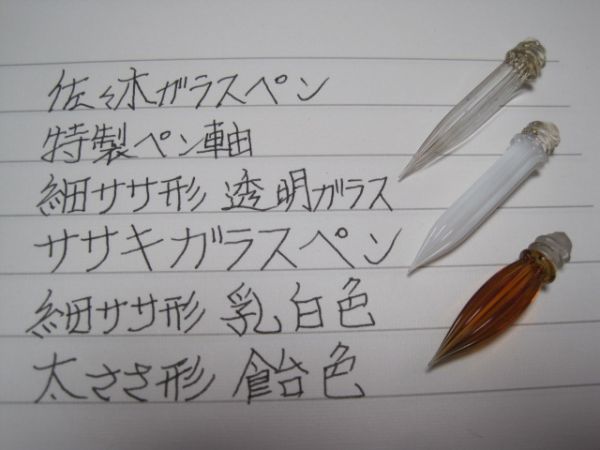 佐々木ガラスペン
特製ペン軸
細ササ形 透明ガラス
ササキガラスペン
細ササ形 乳白色
太ささ形 飴色